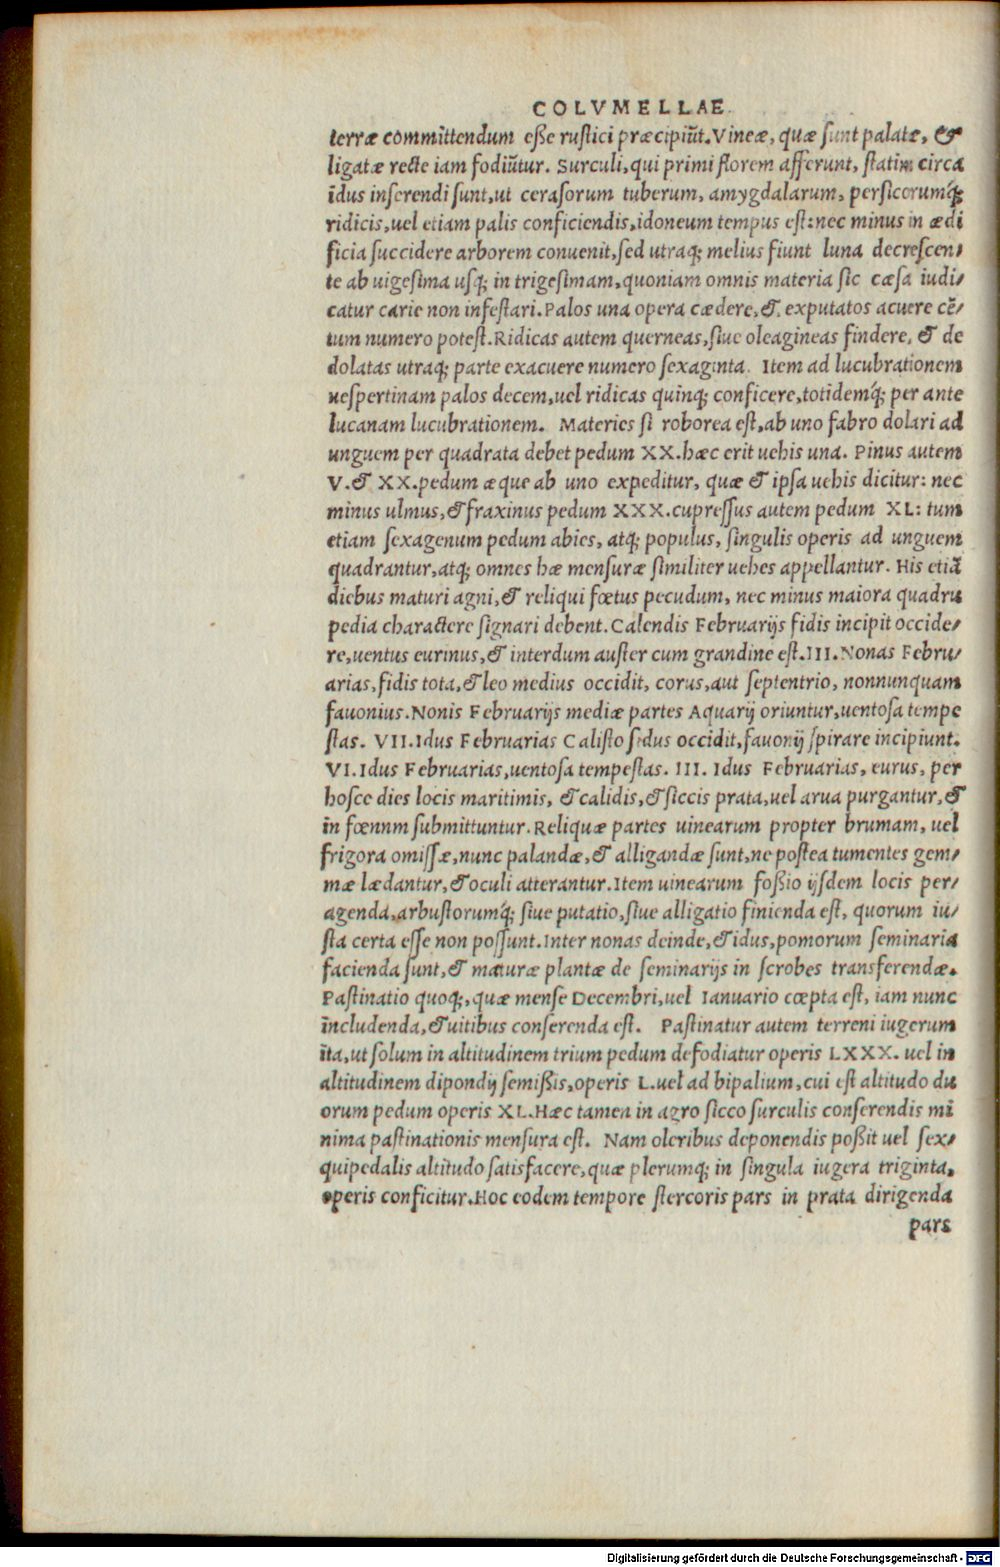 COLVMELLAE
terræ committendum eße rustici præcipiũt. Vineæ, quæ sunt palatæ, &
ligatæ recte iam fodiũtur. Surculi, qui primi florem afferunt, statim circa
idus inserendi sunt, ut cerasorum tuberum, amygdalarum, persicorumq́;
ridicis, uel etiam palis conficiendis, idoneum tempus est: nec minus in ædi
ficia succidere arborem conuenit, sed utraq; melius fiunt luna decrescen-
te ab uigesima usq; in trigesimam, quoniam omnis materia sic cæsa iudi-
catur carie non infestari. Palos una opera cædere, & exputatos acuere cẽ-
tum numero potest. Ridicas autem querneas, siue oleagineas findere, & de
dolatas utraq; parte exacuere numero sexaginta. Item ad lucubrationem
uespertinam palos decem, uel ridicas quinq; conficere, totidemq́; per ante
lucanam lucubrationem. Materies si roborea est, ab uno fabro dolari ad
unguem per quadrata debet pedum XX. hæc erit uehis una. Pinus autem
V. & XX. pedum æque ab uno expeditur, quæ & ipsa uehis dicitur: nec
minus ulmus, & fraxinus pedum XXX. cupressus autem pedum XL: tum
etiam sexagenum pedum abies, atq; populus, singulis operis ad unguem
quadrantur, atq; omnes hæ mensuræ similiter uehes appellantur. His etiã
diebus maturi agni, & reliqui fœtus pecudum, nec minus maiora quadru
pedia charactere signari debent. Calendis Februarijs fidis incipit occide-
re, uentus eurinus, & interdum auster cum grandine est. III. Nonas Febru-
arias, fidis tota, & leo medius occidit, corus, aut septentrio, nonnunquam
fauonius. Nonis Februarijs mediæ partes Aquarij oriuntur, uentosa tempe
stas. VII. Idus Februarias Calisto sidus occidit, fauonij spirare incipiunt.
VI. Idus Februarias, uentosa tempestas. III. Idus Februarias, eurus, per
hosce dies locis maritimis, & calidis, & siccis prata, uel arua purgantur, &
in fœnnm submittuntur. Reliquæ partes uinearum propter brumam, uel
frigora omissæ, nunc palandæ, & alligandæ sunt, ne postea tumentes gem-
mæ lædantur, & oculi atterantur. Item uinearum foßio ijsdem locis per-
agenda, arbustorumq́; siue putatio, siue alligatio finienda est, quorum iu-
sta certa esse non possunt. Inter nonas deinde, & idus, pomorum seminaria
facienda sunt, & maturæ plantæ de seminarijs in scrobes transferendæ.
Pastinatio quoq;, quæ mense Decembri, uel Ianuario cœpta est, iam nunc
includenda, & uitibus conserenda est. Pastinatur autem terreni iugerum
ita, ut solum in altitudinem trium pedum defodiatur operis LXXX. uel in
altitudinem dipondij semißis, operis L. uel ad bipalium, cui est altitudo du
orum pedum operis XL. Hæc tamen in agro sicco surculis conserendis mi
nima pastinationis mensura est. Nam oleribus deponendis poßit uel sex-
quipedalis altitudo satisfacere, quæ plerumq; in singula iugera triginta.
operis conficitur. Hoc eodem tempore stercoris pars in prata dirigenda
pars
Digitalisierung gefördert durch die Deutsche Forschungsgemeinschaft - DFG